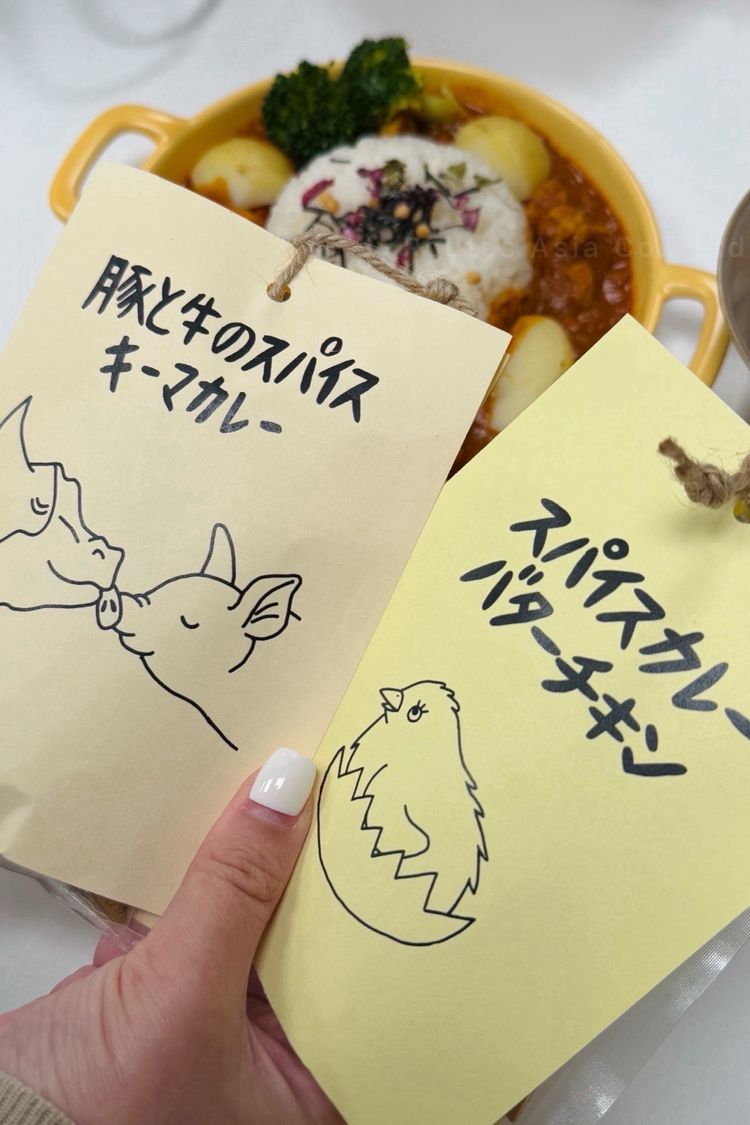 豚と牛のスパイス
キーマカレー
スパイスカレー
バターチキン